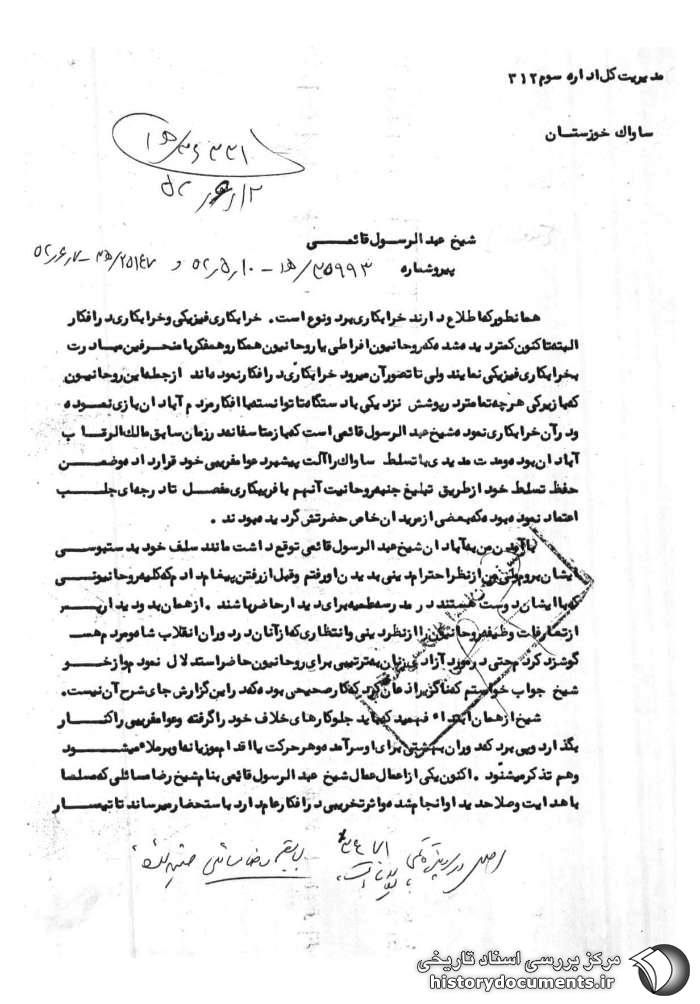 مدیریت کل اداره سوم ۳۱۲
ساواک خوزستان
شیخ عبدالرسول قائمی
پیرو شماره ۲۵۹۹۳/ - ۵۲٫۵٫۱۰ و ۲۵۱۴۷/ - ۵۲٫۶٫۲
همانطور که اطلاع دارند خرابکاری بر دو نوع است. خرابکاری فیزیکی و خرابکاری در افکار
البته تا کنون کمتر دیده شده که روحانیون افراطی یا روحانیون همکار و همفکر با منحرفین مبادرت
بخرابکاری فیزیکی نمایند ولی تا تصور آن میرود خرابکاری در افکار نموده اند از جمله این روحانیون
که با زیرکی هر چه تمامتر در پوشش نزدیکی با دستگاه توانسته با افکار مردم آبادان بازی نموده
و در آن خرابکاری نموده شیخ عبدالرسول قائمی است که با متاسفانه در زمان سابق مالک الرقاب
آبادان بوده و مدت مدیدی با تسلط ساواک را آلت پیشبرد عوامفریبی خود قرار داده و ضمن
حفظ تسلط خود از طریق تبلیغ جنبه روحانیت آنهم با فریبکاری مفصل تا درجه ای جلب
اعتماد نموده بود که بعضی از مریدان خاص حضرتش گردیده بودند .
با آمدن من به آبادان شیخ عبدالرسول قائمی توقع داشت مانند سلف خود بدستبوسی
ایشان بروم ولی من از نظر احترام دینی بدیدن او رفتم و قبل از رفتن پیغام دادم که کلیه روحانیونی
که با ایشان دوست هستند در مدرسه علمیه برای دیدار حاضر باشند . از همان بدو دیدار پس
از تعارفات وظیفه روحانیون را از نظر دینی و انتظاری که از آنان در دوران انقلاب شاه و مردم هست
گوشزد کردم حتی در مورد آزادی زنان به ترتیبی برای روحانیون حاضر استدلال نمودم و از خود
شیخ جواب خواستم که ناگزیر اذعان کرد که کار صحیحی بوده که در این گزارش جای شرح آن نیست.
شیخ از همان ابتداء فهمید که باید جلو کارهای خلاف خود را گرفته و عوامفریبی را کنار
بگذارد و پی برد که دوران بهشتی برای او سر آمده و هر حرکت یا اقدام موزیانه او برملاء میشود
و هم تذکر میشنود . اکنون یکی از اعمال عمال شیخ عبدالرسول قائمی بنام شیخ رضا مسائلی که مسلما
با هدایت و صلاحدید او انجام شده و اثر تخریبی در افکار عامه دارد باستحضار میرساند تا تیمسار
اصل در پرونده قائمی
۲۴۷۸۱
بایگانی است
مرکز بررسی اسناد تاریخی
historydocuments.ir